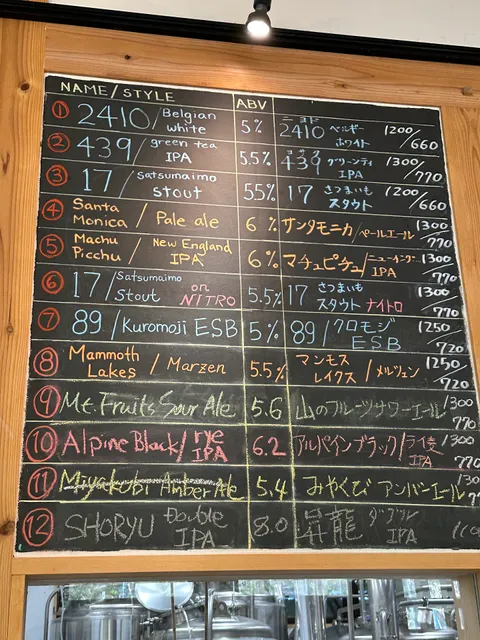 NAME/STYLE ABV
① 2410/Belgian white 5% 2410 ニヨト ベルギーホワイト 1200/660
② 439/green tea IPA 5.5% 439 グリーンティ IPA 1300/770
③ 17/Satsumaimo stout 5.5% 17 さつまいも スタウト 1200/660
④ Santa Monica/Pale ale 6% サンタモニカ/ペールエール 1300/770
⑤ Machu Picchu/New England IPA 6% マチュピチュ/ニューイングランド IPA 1300/770
⑥ 17/Satsumaimo Stout on NITRO 5.5% 17 さつまいも スタウト ナイトロ 1300/770
⑦ 89/Kuromoji ESB 5% 89/クロモジ ESB 1250/720
⑧ Mammoth Lakes/Marzen 5.5% マンモス レイクス/メルツェン 1250/720
⑨ Mt. Fruits Sour Ale 5.6 山のフルーツサワーエール 1300 770
⑩ Alpine Black/rye IPA 6.2 アルパインブラック/ライ麦 IPA 1300 770
⑪ Miyakubi Amber Ale 5.4 みやくび アンバーエール
⑫ SHORYU Double IPA 8.0 昇龍 ダブル IPA